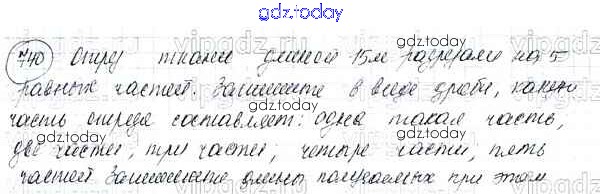 gdz.today
740 Опару ткани длиной 15м разрезали на 5
равных частей. Запишите в виде дроби, какую
часть отреза составляет: одна такая часть,
две части, три части, четыре части, пять
частей Запишите длины получаемых при этом
gdz.today